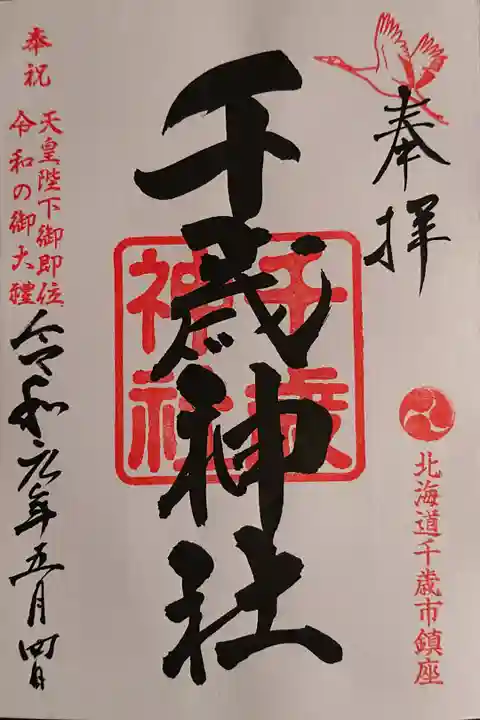 奉拝
北海道千歳市鎮座
千歳神社
千歳
神社
奉祝
天皇陛下御即位
令和の御大禮
令和元年五月四日